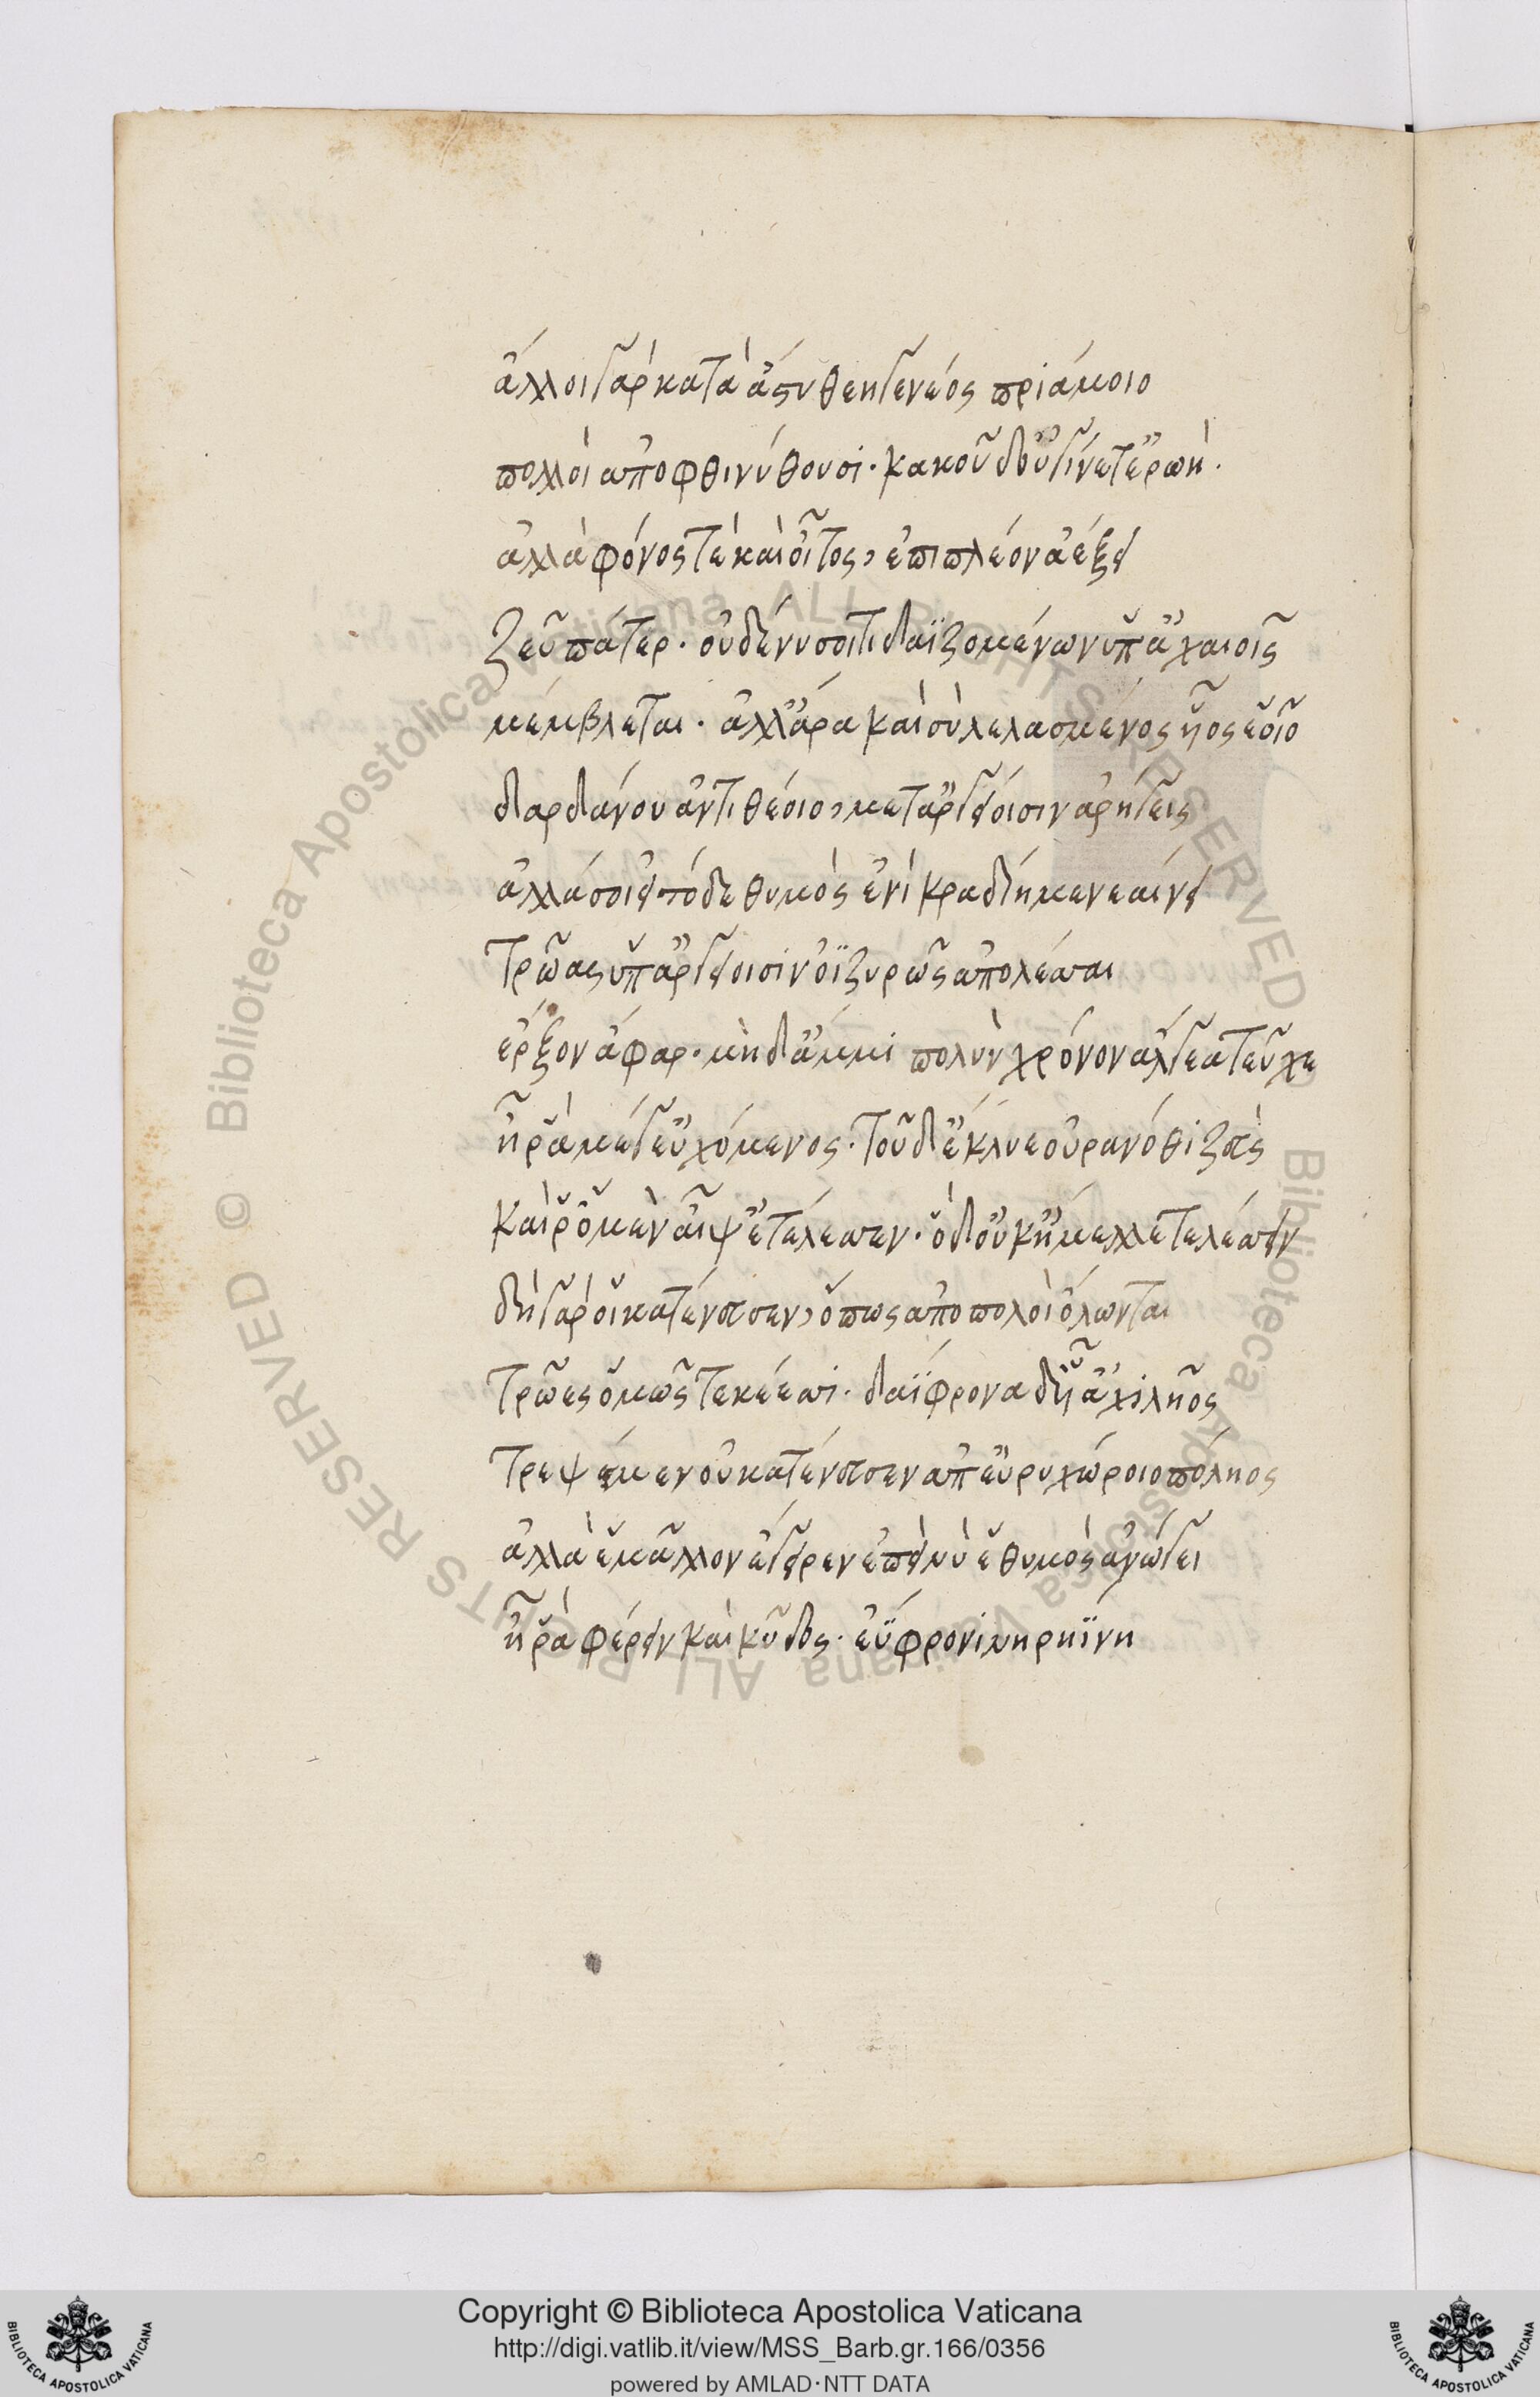 ἄλλοι γὰρ κατὰ ἄστυ θεηγενέος πριάμοιο
πολλοὶ ἀποφθινύθουσι· κακοῦ δ' οὐ γίνετ' ἐρωή·
ἀλλὰ φόνος τὲ καὶ οἶτος, ἐπιπλέον ἀέξει
Ζεῦ πάτερ· οὐδέν νυ σοί τι δαϊζομένων ὑπ' ἀχαιοῖς
μέμβλεται· ἀλλ' ἄρα καὶ σὺ λελασμένος ἦος ἑοῖο
δαρδάνου ἀντιθέοιο, μετ' ἀργείοισιν ἀρήγεις
ἀλλά σοι εἰ τόδε θυμὸς ἐνὶ κραδίη μενεαίνει
Τρῶας ὑπ' ἀργείοισιν ὀϊζυρῶς ἀπολέσσαι
ἔρξον ἄφαρ· μὴ δ' ἄμμι πολὺν χρόνον ἄλγεα τεῦχε
ἦ ῥα μέγ' εὐχόμενος· τοῦ δ' ἔκλυε οὐρανόθι ζεὺς
Καί ῥ' ὃ μὲν αἶψ' ἐτέλεσσεν· ὃ δ' οὐκ ἤμελλε τελέσσειν
δὴ γάρ οἱ κατένευσεν, ὅπως ἀπὸ πολοὶ ὄλωνται
Τρῶες ὁμῶς τεκέεσσι· δαΐφρονα δ' ηῢ ἀχιλῆος
τρεψέμεν οὐ κατένευσεν ἀπ' εὐρυχώροιο πόληος
ἀλλὰ ἑ μᾶλλον ἔγειρεν ἐπεὶ νύ ἑ θυμὸς ἀνώγει
ἦρα φέρειν καὶ κῦδος· ἐΰφρονι νηρηΐνη
Copyright © Biblioteca Apostolica Vaticana
http://digi.vatlib.it/view/MSS_Barb.gr.166/0356
powered by AMLAD·NTT DATA